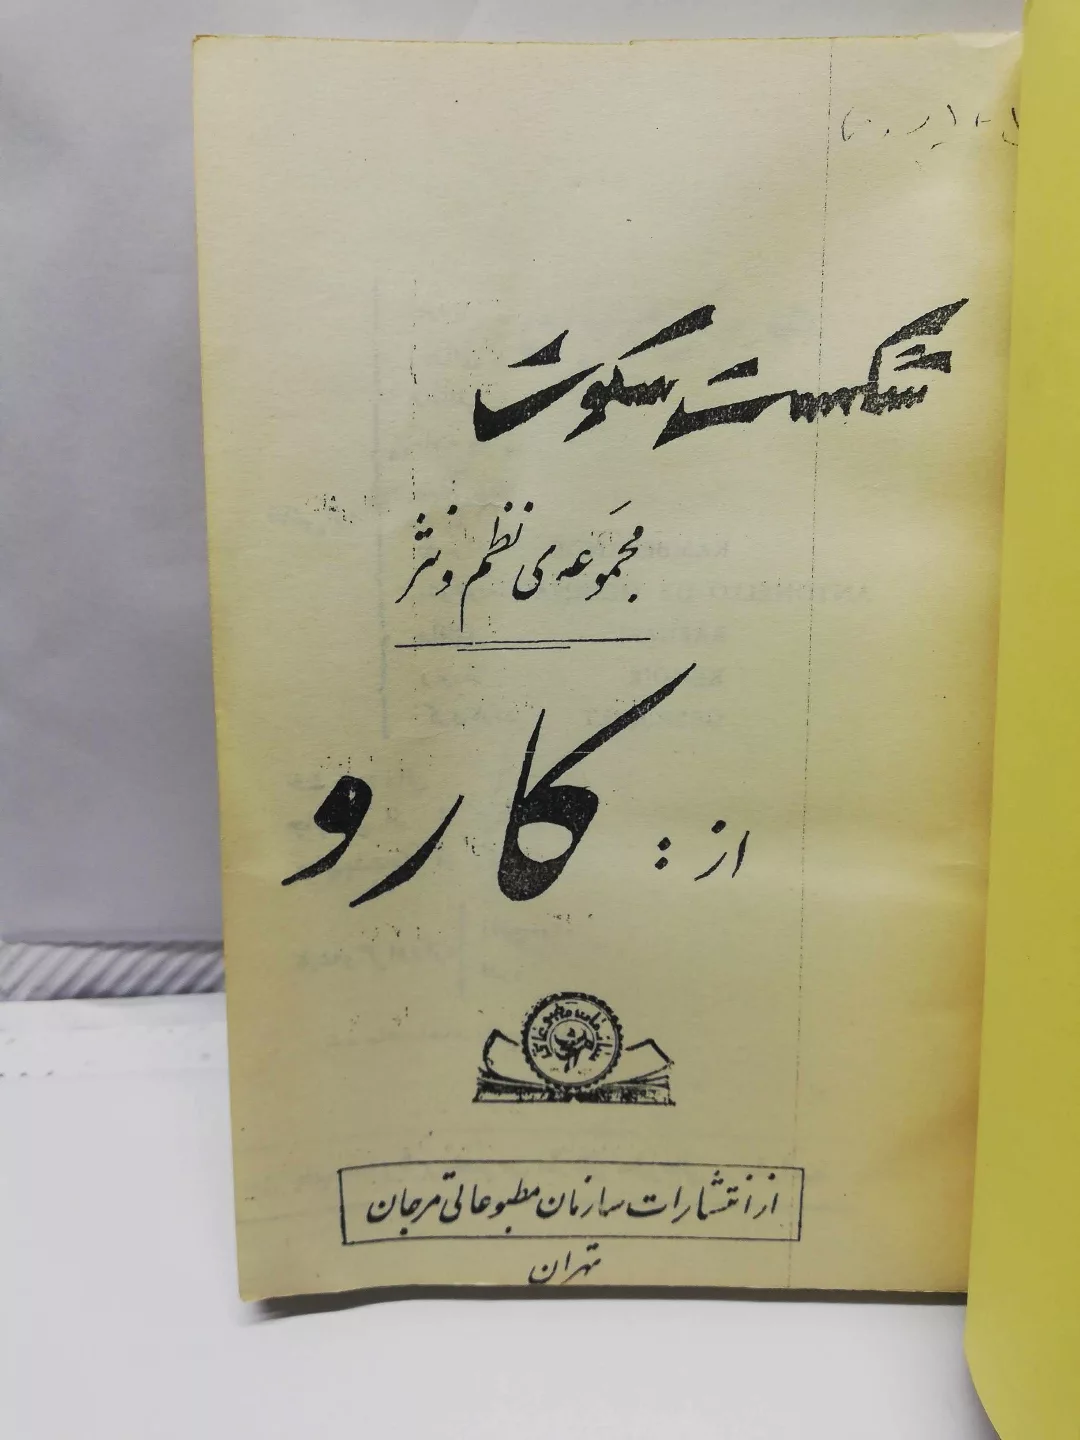 شکست سکوت
مجموعه‌ی نظم و نثر
از : کارو
سازمان مطبوعاتی
از انتشارات سازمان مطبوعاتی مرجان
تهران